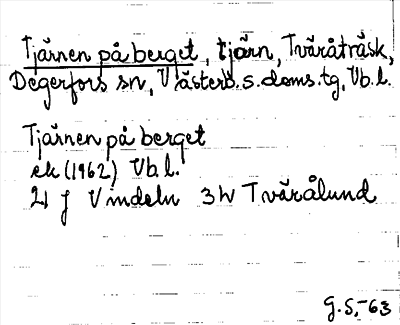 Tjärnen på berget, tjärn, Tväråträsk,
Degerfors sn, Västerb. s. doms. tg, Vb. l.
Tjärnen på berget
ek (1962) Vb. l.
21 J Vindeln 3 h Tvärålund
G. S. -63